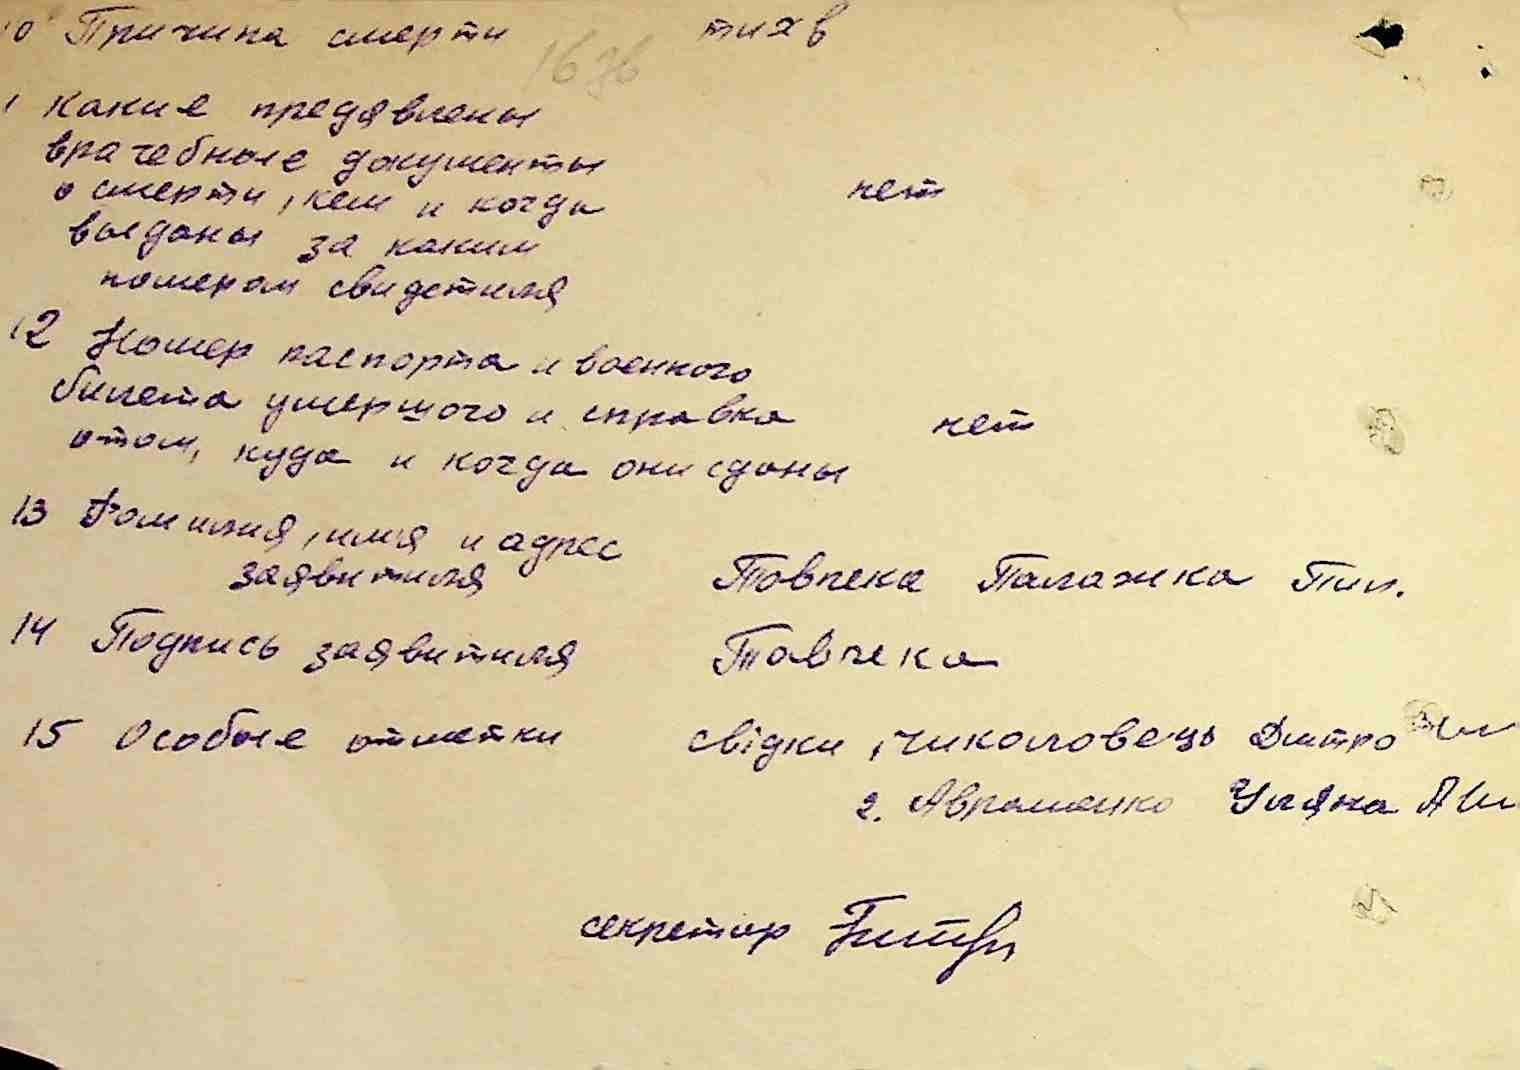 10 Причина смерти тихв
1636
1 Какие предявлены
врачебные документы
о смерти, кем и когда нет
выданы за каким
номером свидетиля
12 Номер паспорта и военного
билета умершого и справка нет
отом, куда и когда они сданы
13 Фамилия, имя и адрес
заявитиля Товпека Палажка Пил.
14 Подпись заявитиля Товпека
15 Особые отметки свідки, Чиколовець Дмитро
2. Авраменко Уляна
секретар